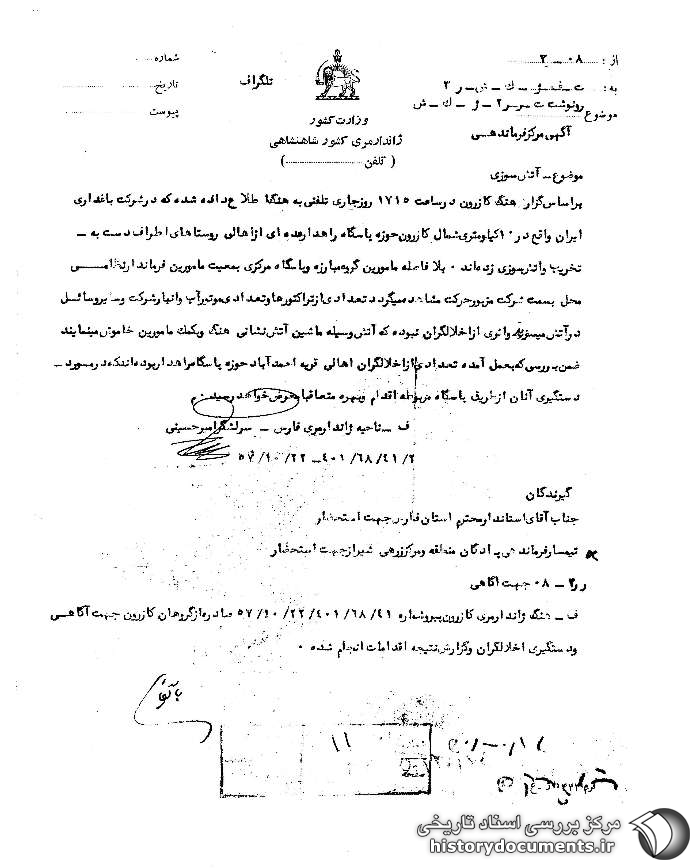 از : ۰۸ – ۳
شماره
به : ت ف ژ – ك – ش – ر ۳
تلگراف
تاریخ
رونوشت ت – ر ۲ – ژ – ك – ش
موضوع
پیوست
وزارت کشور
آگهی مرکز فرماندهی
ژاندارمری کشور شاهنشاهی
( تلفن )
موضوع – آتش سوزی
براساس گزارش هنگ کازرون در ساعت ۱۷۱۵ روز جاری تلفنی به هنگ اطلاع داده شده که در شرکت باغداری
ایران واقع در ۱۰ کیلومتری شمال کازرون حوزه پاسگاه راهدار عده ای از اهالی روستاهای اطراف دست به –
تخریب و آتش سوزی زده اند ۰ بلافاصله مامورین گروه مبارزه و پاسگاه مرکزی بمعیت مامورین فرماندار نظامی
محل بسمت شرکت مزبور حرکت مشاهده میگردد تعدادی از تراکتورها و تعدادی موتور آب و انبار شرکت و سایر وسائل
در آتش میسوزد و اثری از اخلالگران نبوده که آتش وسیله ماشین آتش نشانی هنگ و بکمک مامورین خاموش مینمایند
ضمن بررسی که بعمل آمده تعدادی از اخلالگران اهالی قریه احمدآباد حوزه پاسگاه راهدار بوده اند که در مورد –
دستگیری آنان از طریق پاسگاه مربوطه اقدام و بهره متعاقبا بعرض خواهد رسید ۰
ف – ناحیه ژاندارمری فارس – سرلشگر امیرحسینی
۲/ ۴۱/ ۶۸/ ۴۰۱ – ۲۲/ ۱۰/ ۵۷
گیرندگان
جناب آقای استاندار محترم استان فارس جهت استحضار
تیمسار فرماندهی پادگان منطقه و مرکز زرهی شیراز جهت استحضار
ر ۲ – ۰۸ جهت آگاهی
ف – هنگ ژاندارمری کازرون پیرو شماره ۴۱/ ۶۸/ ۴۰۱/ ۲۲/ ۱۰/ ۵۷ صادره از گروهان کازرون جهت آگاهی
و دستگیری اخلالگران و گزارش نتیجه اقدامات انجام شده ۰
۱۱
مرکز بررسی اسناد تاریخی
historydocuments.ir